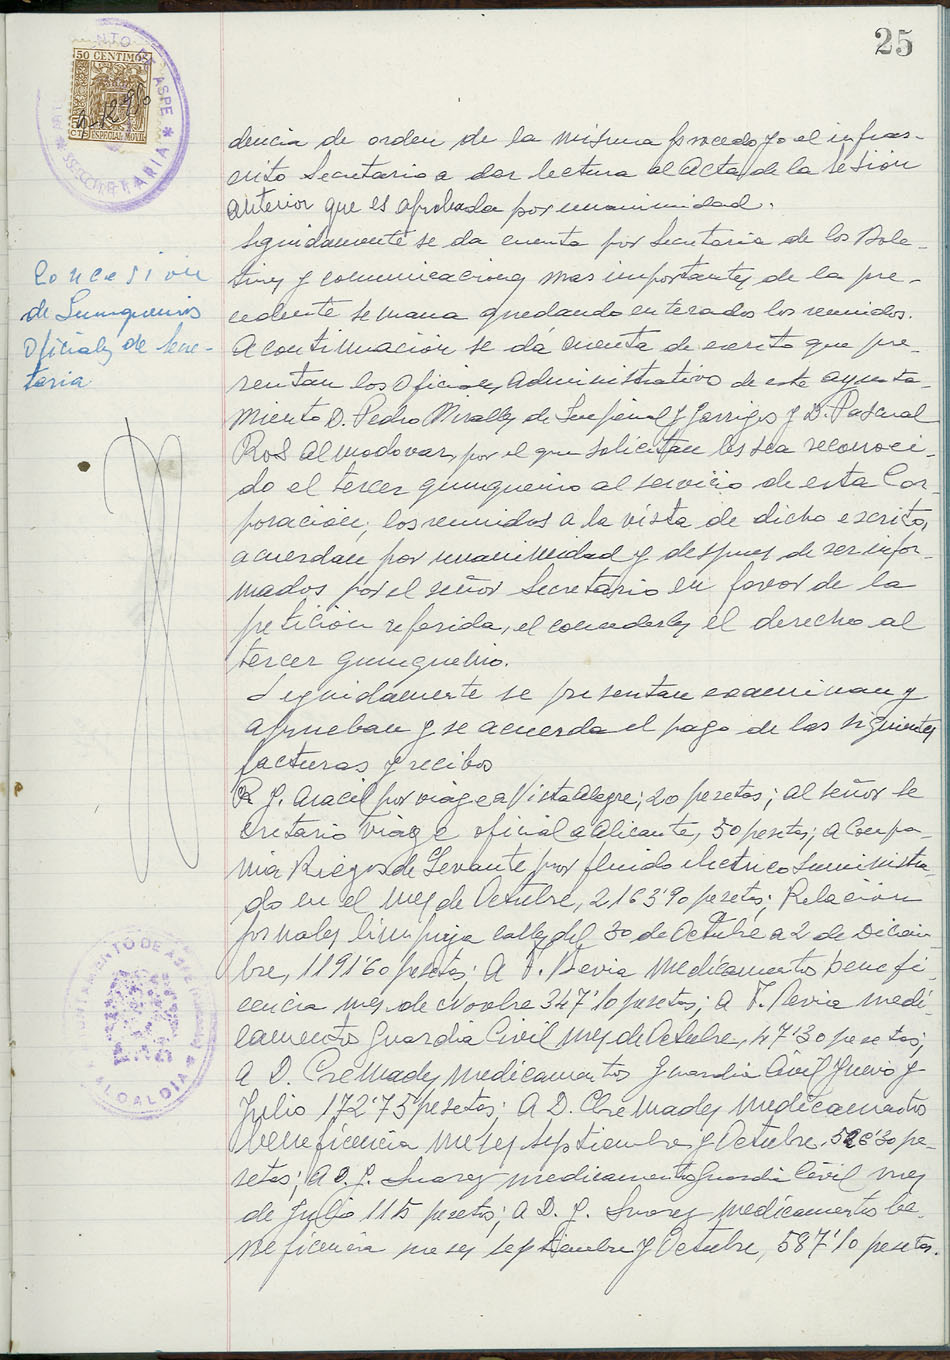 25
AYUNTAMIENTO DE ASPE
SECRETARIA
50 CENTIMOS
ESPECIAL MOVIL
dencia de orden de la misma procedo yo el infras-
crito Secretario a dar lectura al Acta de la sesion
anterior que es aprobada por unanimidad.
Seguidamente se da cuenta por Secretaria de los Bole-
tines y comunicaciones mas importantes de la pre-
cedente semana quedando enterados los reunidos.
Concesion
de Quinquenios
Oficiales de Secre-
taria
A continuacion se dá cuenta de escrito que pre-
sentan los Oficiales Administrativo de este ayunta-
miento D. Pedro Miralles de Imperial y Garrigos y D. Pascual
Ros Almodovar, por el que solicitan les sea reconoci-
do el tercer quinquenio al servicio de esta Cor-
poracion; los reunidos a la vista de dicho escrito,
acuerdan por unanimidad y despues de ser infor-
mados por el señor Secretario en favor de la
peticion referida, el concederles el derecho al
tercer quinquenio.
Seguidamente se presentan examinan y
aprueban y se acuerda el pago de las siguientes
facturas y recibos
R. J. Aracil por viage a Vista Alegre; 20 pesetas; al señor Se
cretario viage oficial a Alicante, 50 pesetas; a Compa-
ñia Riegos de Levante por fluido electrico suministra-
do en el mes de Octubre, 2163'90 pesetas; Relacion
jornales limpieza calles del 30 de Octubre a 2 de Diciem-
bre, 1191'60 pesetas; A F. Bevia medicamentos benefi-
cencia mes de Novbre 347'10 pesetas; a F. Bevia medi-
camentos Guardia Civil mes de Octubre, 47'30 pesetas;
a D. Cremades medicamentos Guardia Civil Junio y
Julio 172'75 pesetas; A D. Cremades medicamentos
beneficencia meses septiembre y Octubre, 526'30 pe-
setas; A D. J. Suarez medicamentos Guardia Civil mes
de Julio 115 pesetas; A D. J. Suarez medicamentos be-
neficencia meses septiembre y Octubre, 587'10 pesetas.
AYUNTAMIENTO DE ASPE
ALCALDIA